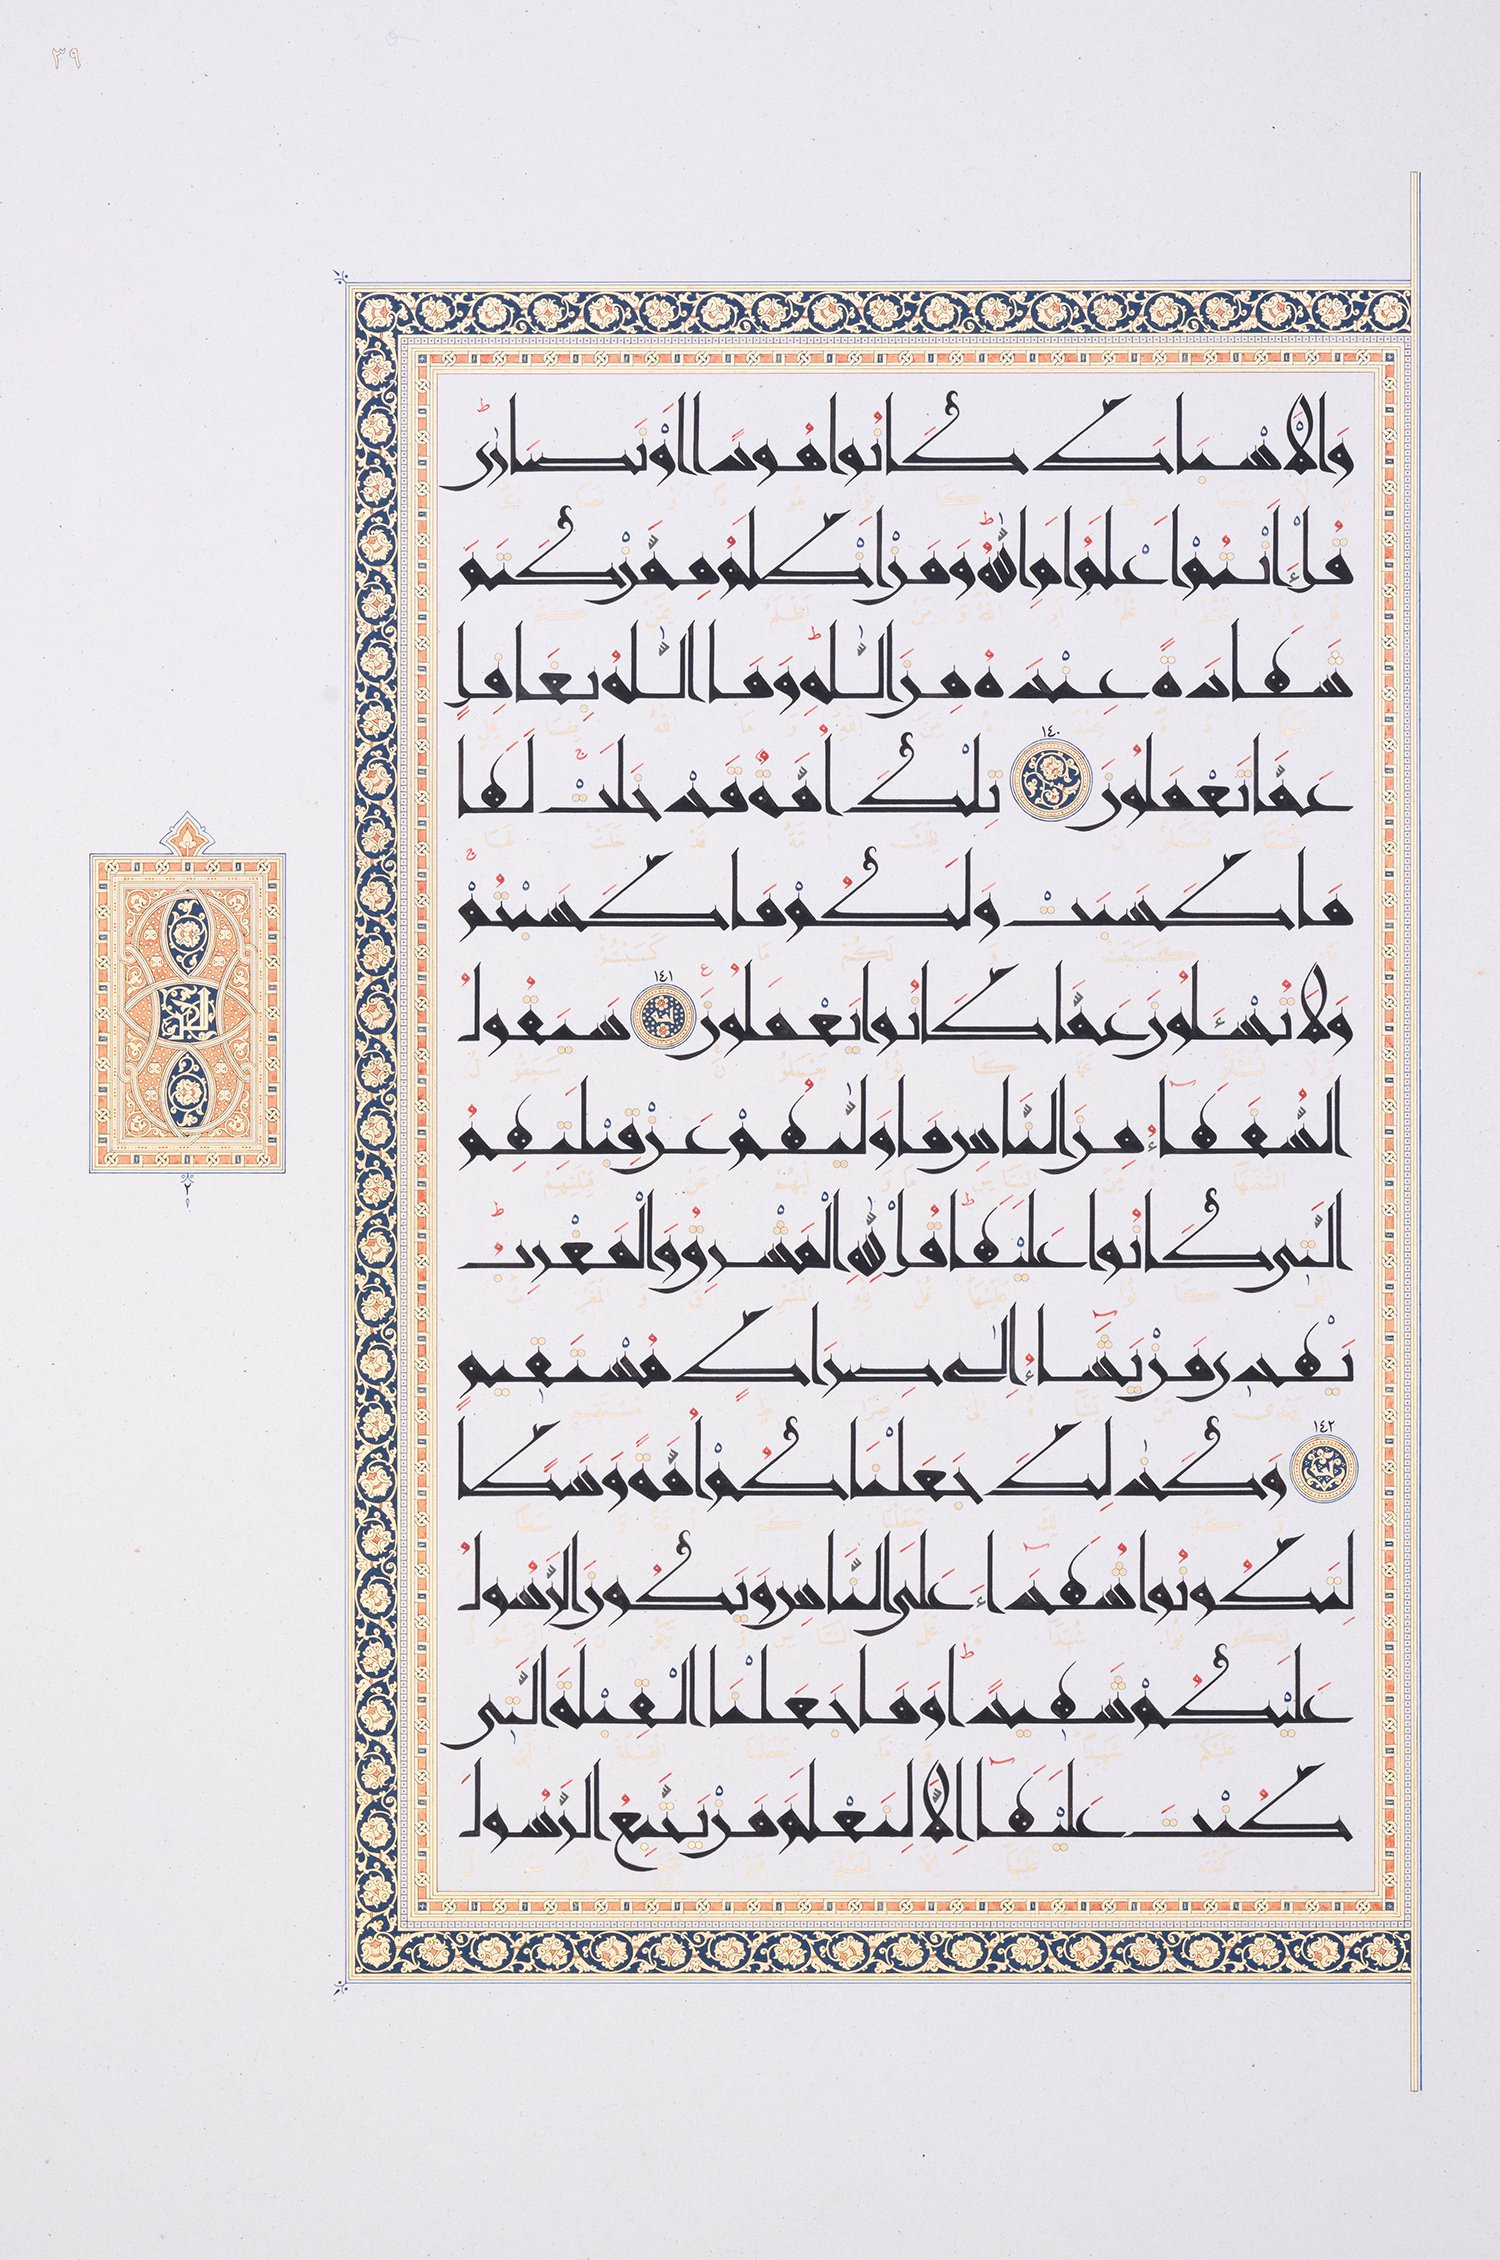 ٣٩
وَالْأَسْبَاطَ كَانُوا هُودًا أَوْ نَصَارَىٰ
قُلْ ءَأَنْتُمْ أَعْلَمُ أَمِ اللَّهُ وَمَنْ أَظْلَمُ مِمَّنْ كَتَمَ
شَهَادَةً عِنْدَهُ مِنَ اللَّهِ وَمَا اللَّهُ بِغَافِلٍ
عَمَّا تَعْمَلُونَ ١٤٠ تِلْكَ أُمَّةٌ قَدْ خَلَتْ لَهَا
مَا كَسَبَتْ وَلَكُمْ مَا كَسَبْتُمْ
وَلَا تُسْـَٔلُونَ عَمَّا كَانُوا يَعْمَلُونَ ١٤١ سَيَقُولُ
السُّفَهَاءُ مِنَ النَّاسِ مَا وَلَّىٰهُمْ عَنْ قِبْلَتِهِمُ
الَّتِي كَانُوا عَلَيْهَا قُلْ لِلَّهِ الْمَشْرِقُ وَالْمَغْرِبُ
يَهْدِي مَنْ يَشَاءُ إِلَىٰ صِرَاطٍ مُسْتَقِيمٍ
١٤٢ وَكَذَٰلِكَ جَعَلْنَاكُمْ أُمَّةً وَسَطًا
لِتَكُونُوا شُهَدَاءَ عَلَى النَّاسِ وَيَكُونَ الرَّسُولُ
عَلَيْكُمْ شَهِيدًا وَمَا جَعَلْنَا الْقِبْلَةَ الَّتِي
كُنْتَ عَلَيْهَا إِلَّا لِنَعْلَمَ مَنْ يَتَّبِعُ الرَّسُولَ
٢